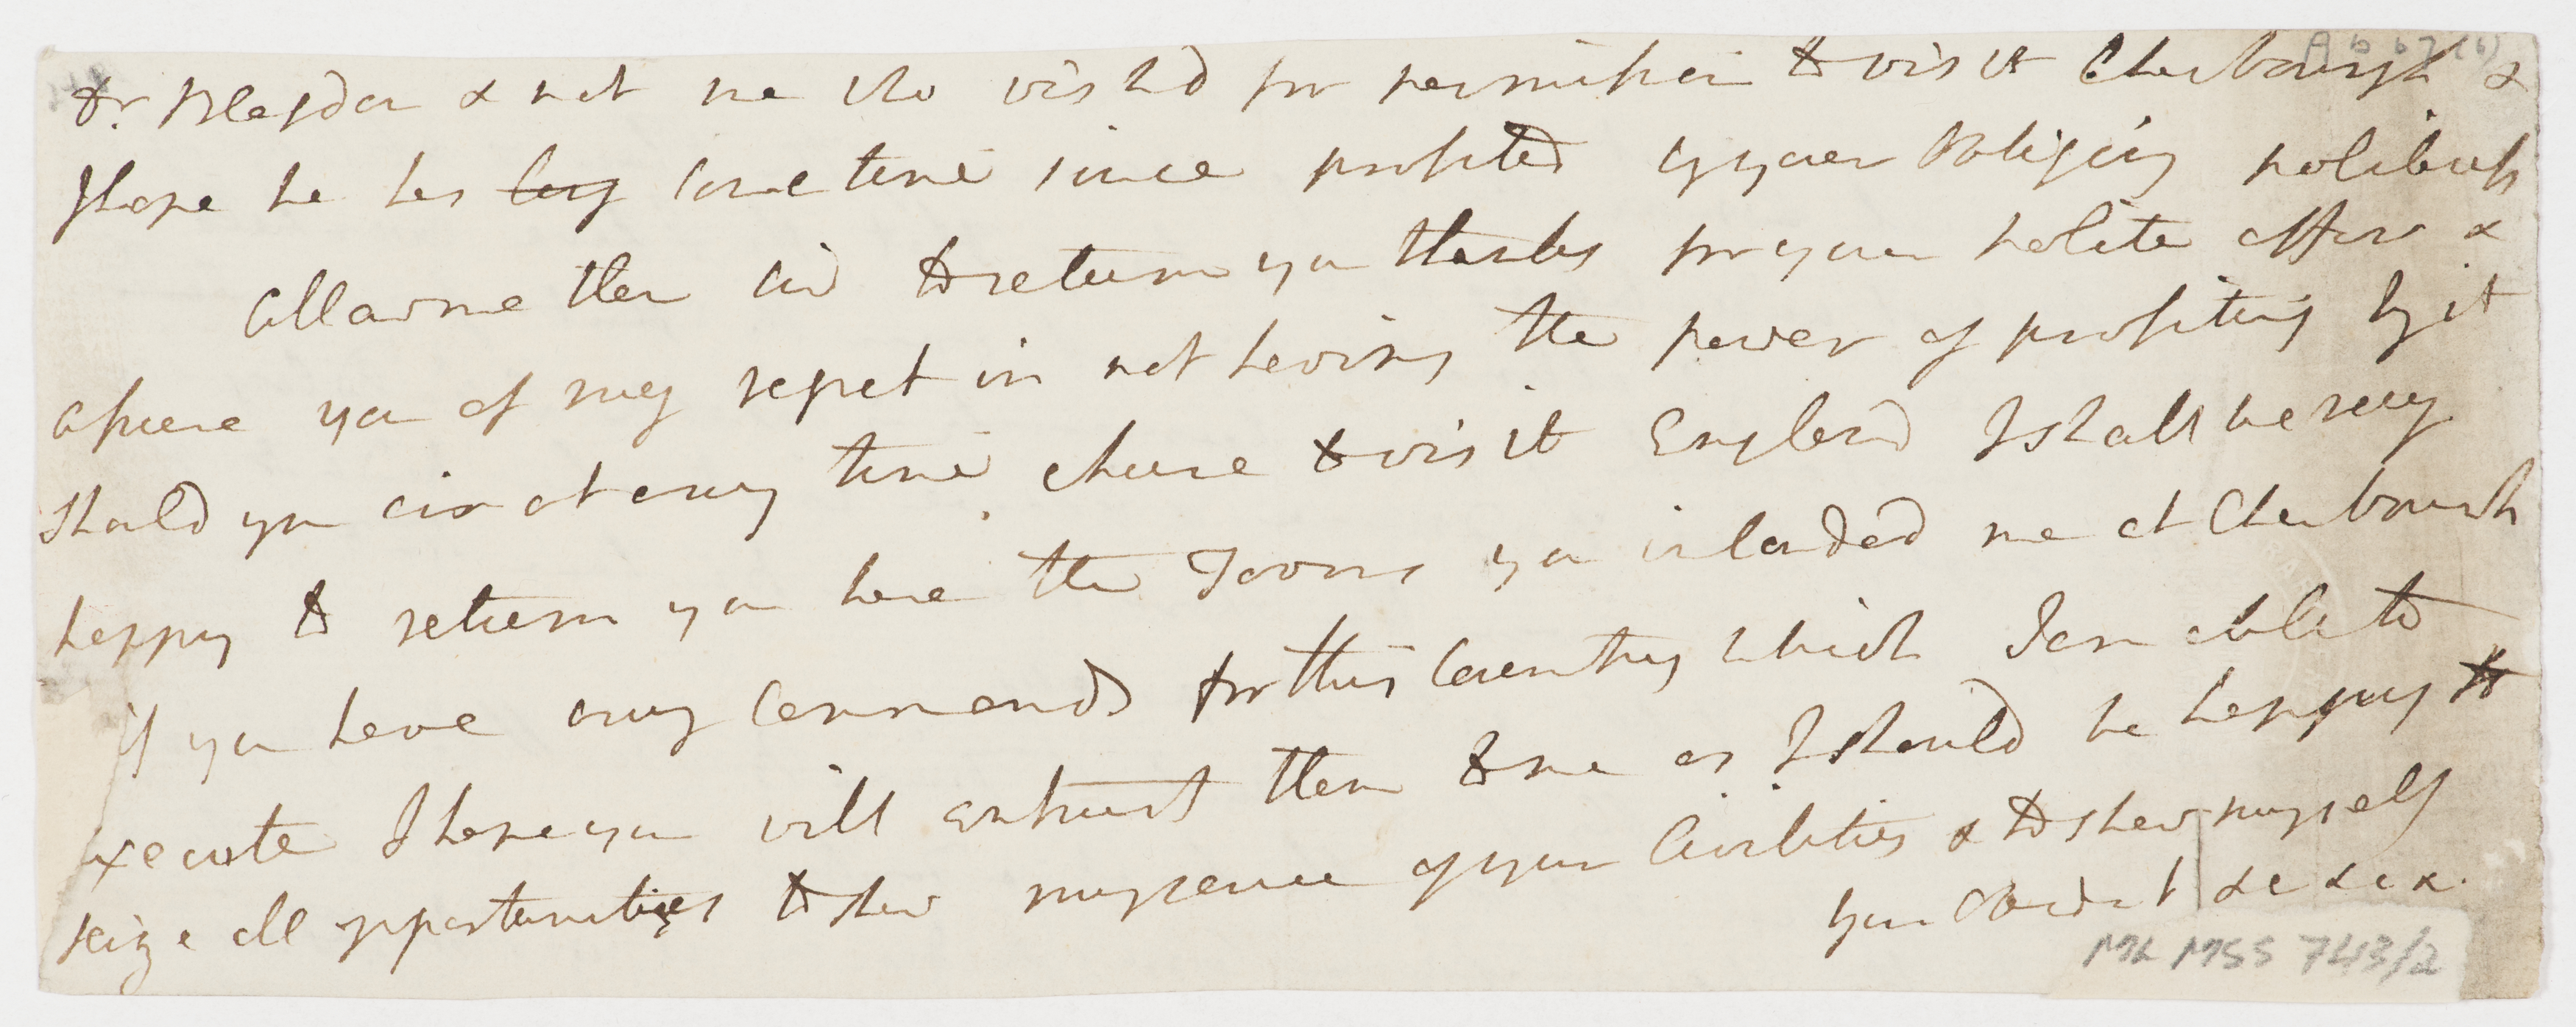 Ab 67 (6)
Dr. Blagden & not me who wishd for permission to visit Cherbourgh &
I hope he has long some time since profited by your Obliging politeness
Allow me then Sir to return you thanks for your polite offers &
assure you of my regret in not having the power of profiting by it
should you Sir at any time chuse to visit England I shall be very
happy to return you here the Favors you intended me at Cherbourgh
if you have any Commands for this Country which I am able to
execute I hope you will entrust them to me as I should be happy to
seize all opportunities to shew my sence of your Civilities & to shew myself
your Obedient &c &c &c.
ML MSS 743/2